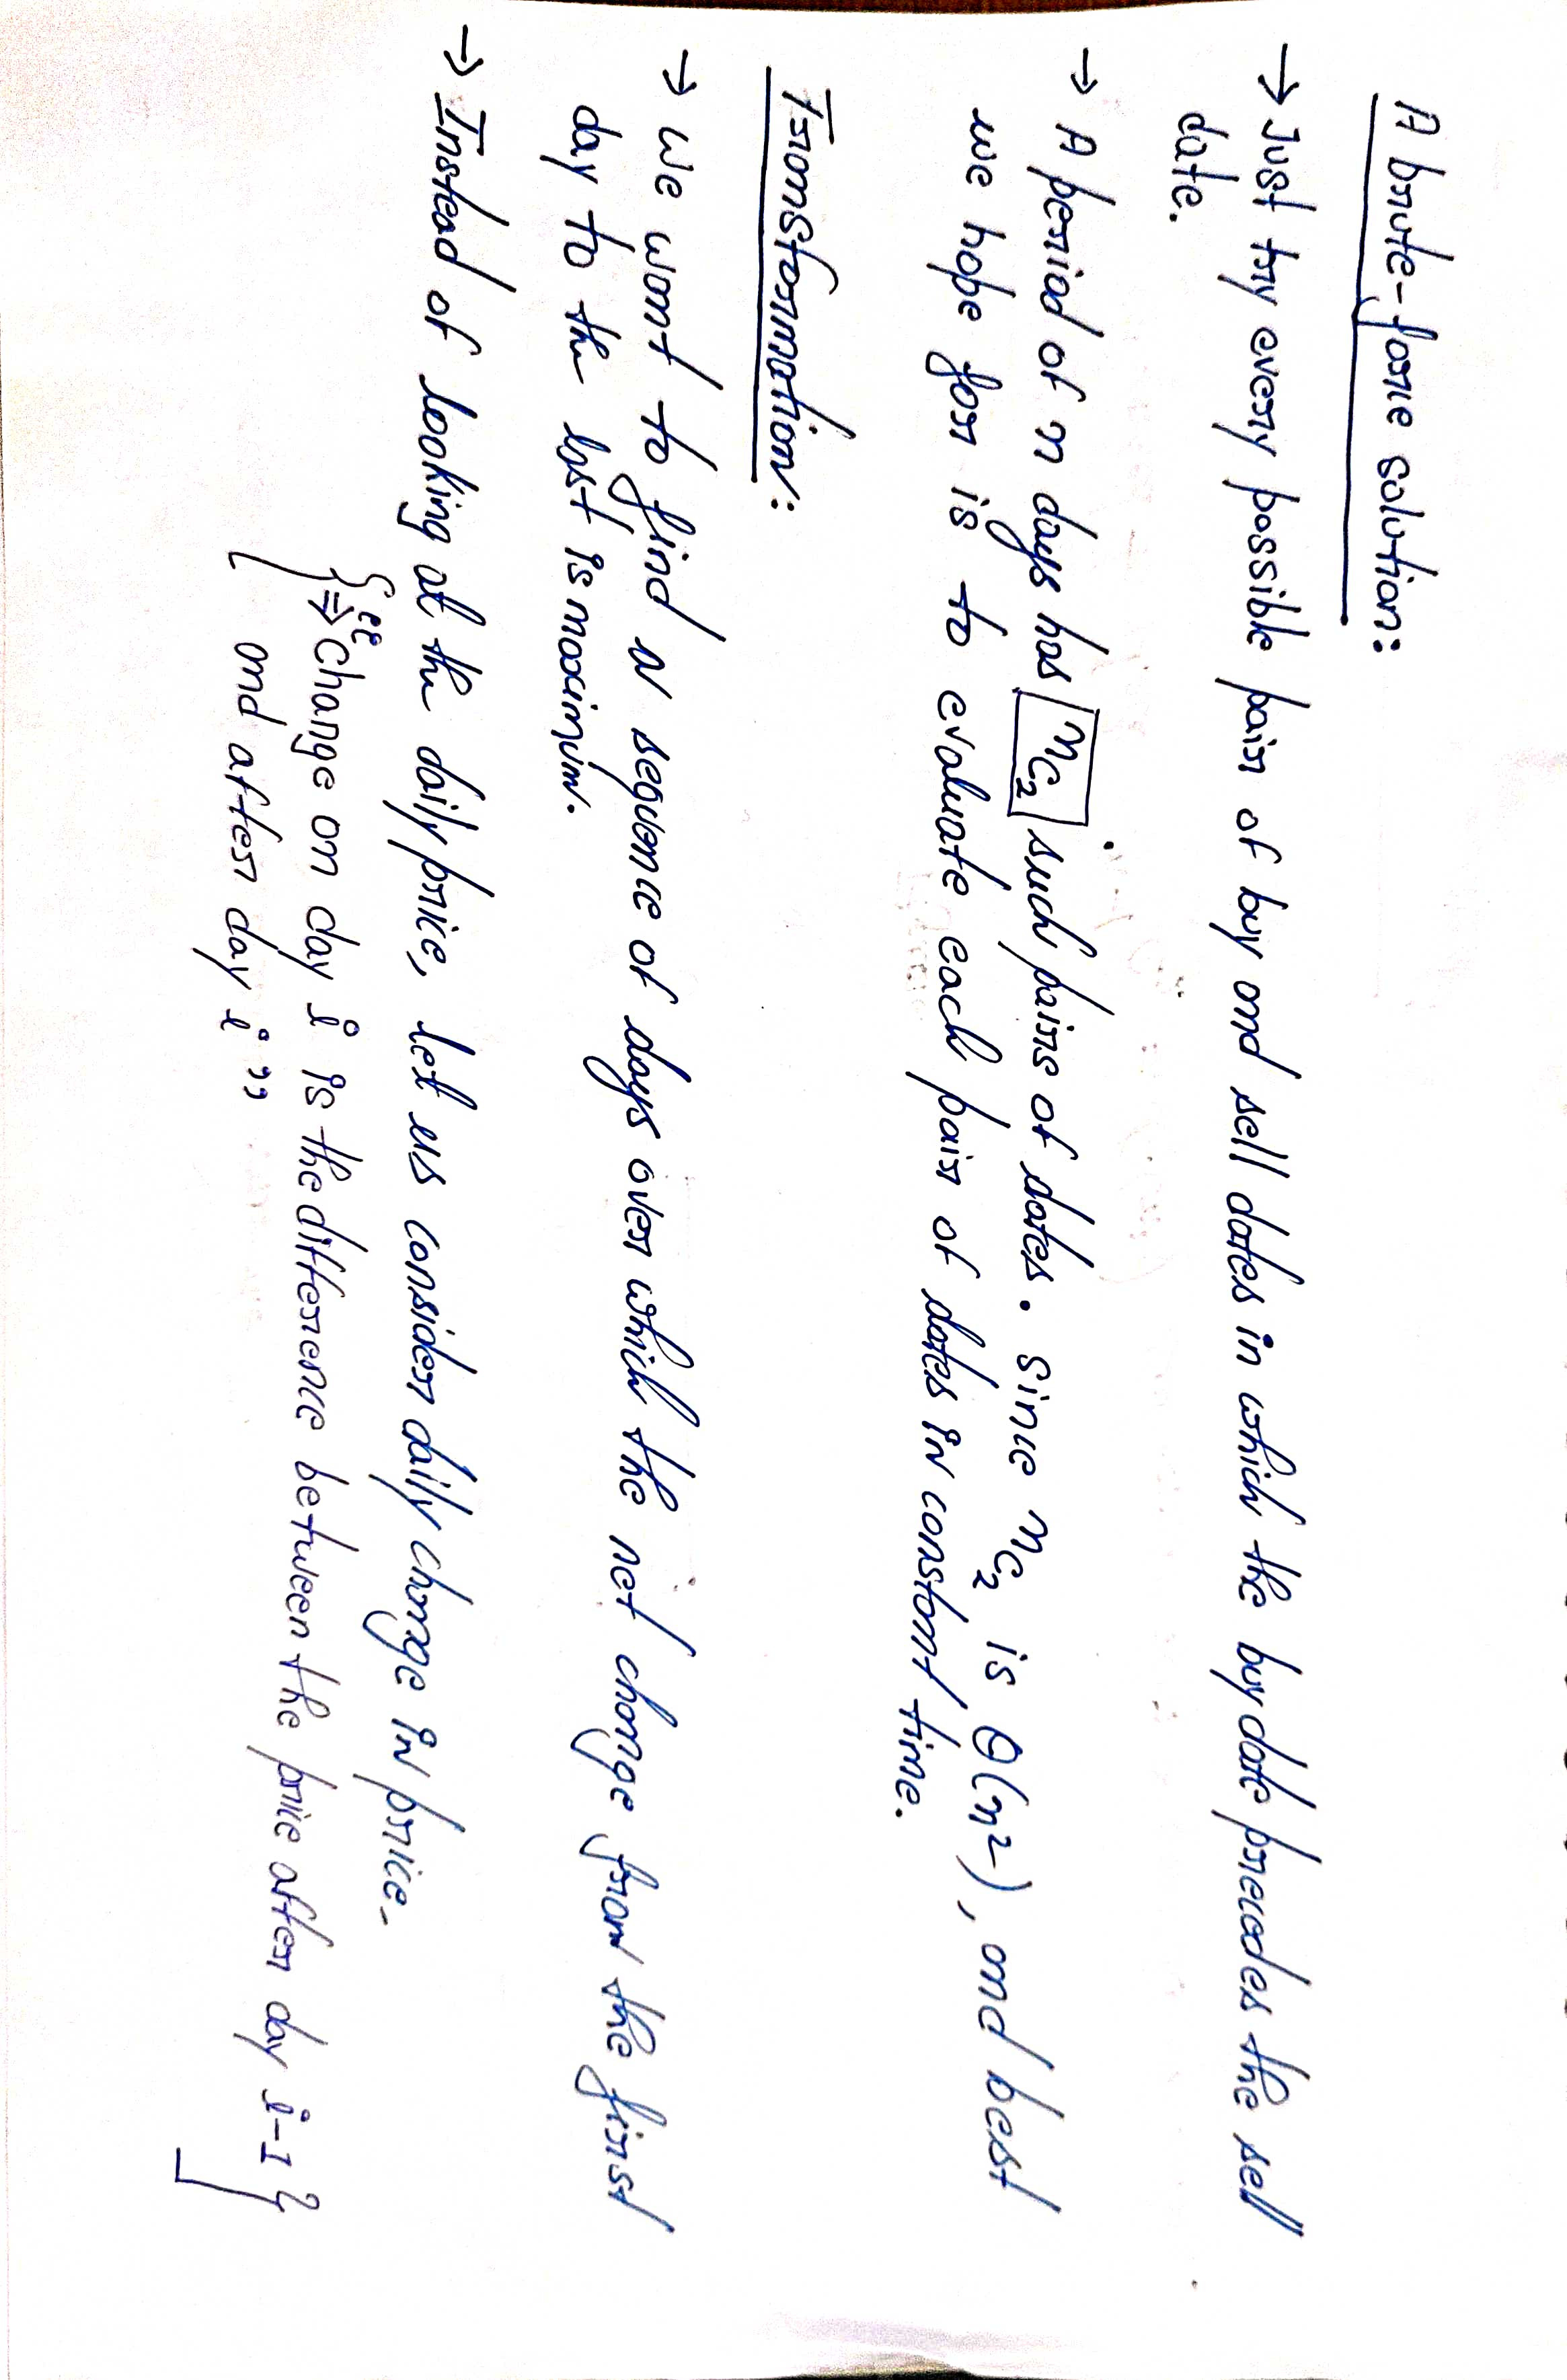 A brute-force solution:
→ Just try every possible pair of buy and sell dates in which the buy date precedes the sell
date.
→ A period of n days has nC₂ such pairs of dates. Since nC₂ is Θ(n²), and best
we hope for is to evaluate each pair of dates in constant time.
Transformation:
→ We want to find a sequence of days over which the net change from the first
day to the last is maximum.
→ Instead of looking at the daily price, let us consider daily change in price.
{⇒ “change on day i is the difference between the price after day i-1}
[ and after day i ” ]